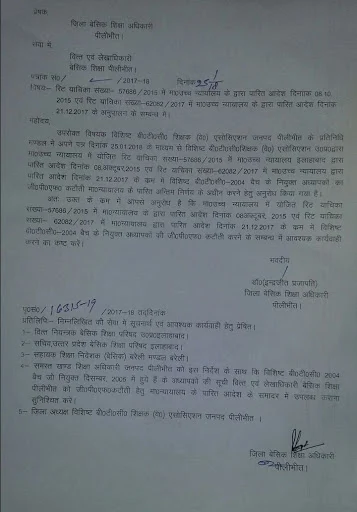 प्रेषक,
जिला बेसिक शिक्षा अधिकारी
पीलीभीत।
सेवा में,
वित्त एवं लेखाधिकारी
बेसिक शिक्षा पीलीभीत।
पत्रांक सं0/ /2017-18 दिनांक
विषय- रिट याचिका संख्या- 57686/2015 में मा0उच्च न्यायालय के द्वारा पारित आदेश दिनांक 08.10.
2015 एवं रिट याचिका संख्या-62082/2017 में मा0उच्च न्यायालय के द्वारा पारित आदेश दिनांक
21.12.2017 के अनुपालन के सम्बन्ध में।
महोदय,
उपरोक्त विषयक विशिष्ट बी0टी0सी0 शिक्षक (वे0) एसोसिएशन जनपद पीलीभीत के प्रतिनिधि
मण्डल ने अपने पत्र दिनांक 25.01.2018 के माध्यम से विशिष्ट बी0टी0सी0शिक्षक (वे0) एसोसिएशन उ0प्र0द्वारा
मा0उच्च न्यायालय में योजित रिट याचिका संख्या-57686/2015 में मा0उच्च न्यायालय इलाहाबाद द्वारा
पारित आदेश दिनांक 08अक्टूबर,2015 एवं रिट याचिका संख्या- 62082/2017 में मा0न्यायालय द्वारा
पारित आदेश दिनांक 21.12.2017 के क्रम में विशिष्ट बी0टी0सी0-2004 बैच के नियुक्त अध्यापकों का
जी0पी0एफ0 कटौती मा0न्यायालय के पारित अन्तिम निर्णय के अधीन करने हेतु अनुरोध किया गया है।
अतः उक्त के क्रम में आपसे अनुरोध है कि मा0उच्च न्यायालय में योजित रिट याचिका
संख्या-57686/2015 में मा0न्यायालय के द्वारा पारित आदेश दिनांक 08अक्टूबर, 2015 एवं रिट याचिका
संख्या- 62082/2017 में मा0न्यायालय द्वारा पारित आदेश दिनांक 21.12.2017 के क्रम में विशिष्ट
बी0टी0सी0-2004 बैच के नियुक्त अध्यापकों की जी0पी0एफ0 कटौती करने के सम्बन्ध में आवश्यक कार्यवाही
करने का कष्ट करें।
भवदीय
डॉ0(इन्द्रजीत प्रजापति)
जिला बेसिक शिक्षा अधिकारी
पीलीभीत।
पृ0सं0/ 16315-19 /2017-18 तद्दिनांक
प्रतिलिपि:- निम्नलिखित की सेवा में सूचनार्थ एवं आवश्यक कार्यवाही हेतु प्रेषित।
1- वित्त नियन्त्रक बेसिक शिक्षा परिषद उ0प्र0इलाहाबाद।
2- सचिव,उत्तर प्रदेश बेसिक शिक्षा परिषद इलाहाबाद।
3- सहायक शिक्षा निदेशक (बेसिक) बरेली मण्डल बरेली।
4- समस्त खण्ड शिक्षा अधिकारी जनपद पीलीभीत को इस निर्देश के साथ कि विशिष्ट बी0टी0सी0 2004
बैच जो नियुक्त दिसम्बर, 2005 में हुये है के अध्यापकों की सूची वित्त एवं लेखाधिकारी बेसिक शिक्षा
पीलीभीत को जी0पी0एफ0कटौती हेतु मा0न्यायालय के पारित आदेश के समादर में उपलब्ध कराना
सुनिश्चित करें।
5- जिला अध्यक्ष विशिष्ट बी0टी0सी0 शिक्षक (वे0) एसोसिएशन जनपद पीलीभीत।
जिला बेसिक शिक्षा अधिकारी
पीलीभीत।